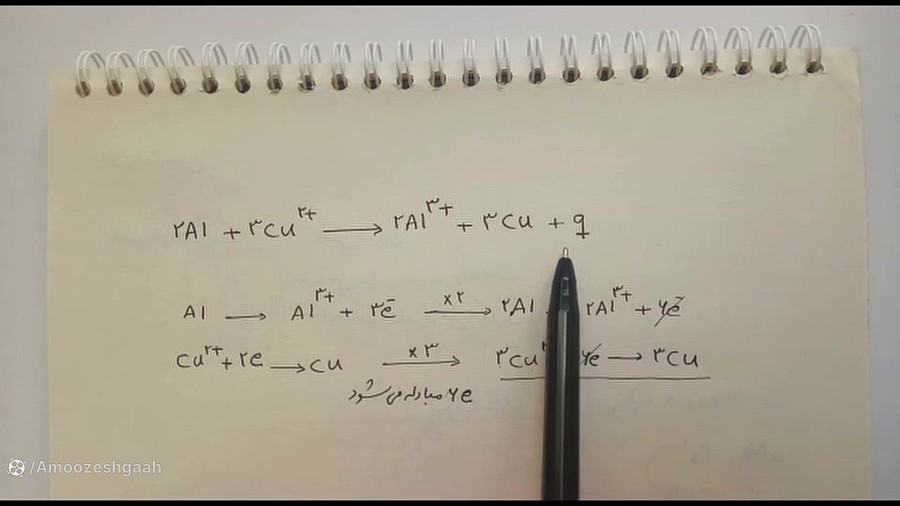 ۲Al + ۳Cu²⁺ → ۲Al³⁺ + ۳Cu + q
Al → Al³⁺ + ۳e⁻ ×۲ → ۲Al ۲Al³⁺ + ۶e⁻
Cu²⁺ + ۲e → Cu ×۳ → ۳Cu² ۶e → ۳Cu
۶e مبادله می‌شود
/Amoozeshgaah